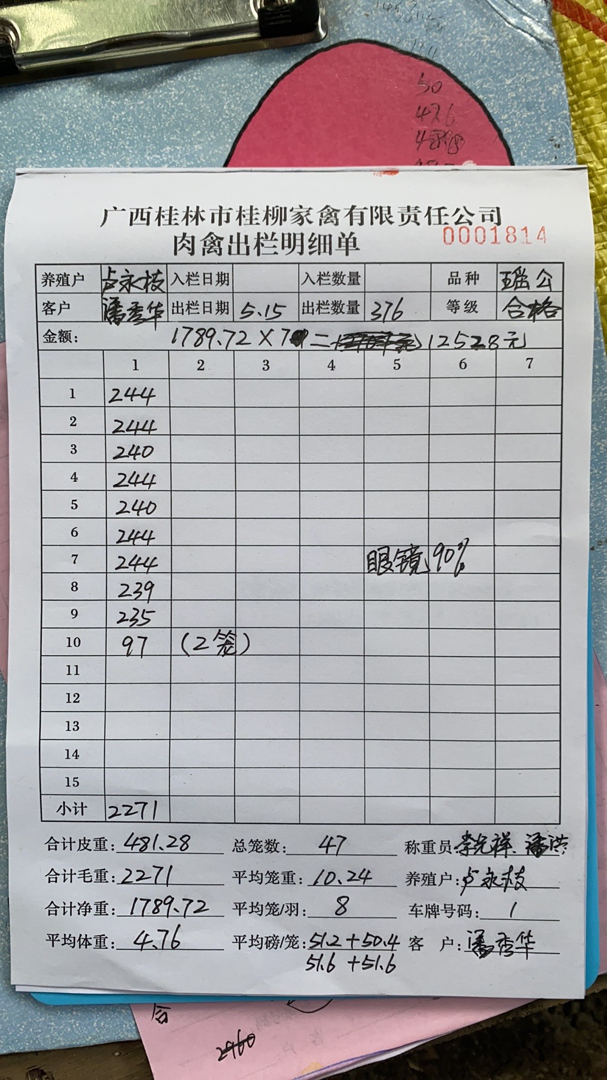 50
47.6
48.8
广西桂林市桂柳家禽有限责任公司
肉禽出栏明细单
0001814
养殖户 卢永枝 入栏日期 入栏数量 品种 瑶公
客户 潘秀华 出栏日期 5.15 出栏数量 376 等级 合格
金额: 1789.72×7 = 12528元
1 2 3 4 5 6 7
1 244
2 244
3 240
4 244
5 240
6 244
7 244 眼镜90%
8 239
9 235
10 97 (2笼)
11
12
13
14
15
小计 2271
合计皮重: 481.28 总笼数: 47 称重员: 李光祥 潘洪
合计毛重: 2271 平均笼重: 10.24 养殖户: 卢永枝
合计净重: 1789.72 平均笼/羽: 8 车牌号码: 1
平均体重: 4.76 平均磅/笼: 51.2+50.4 客 户: 潘秀华
51.6 +51.6
合
2460